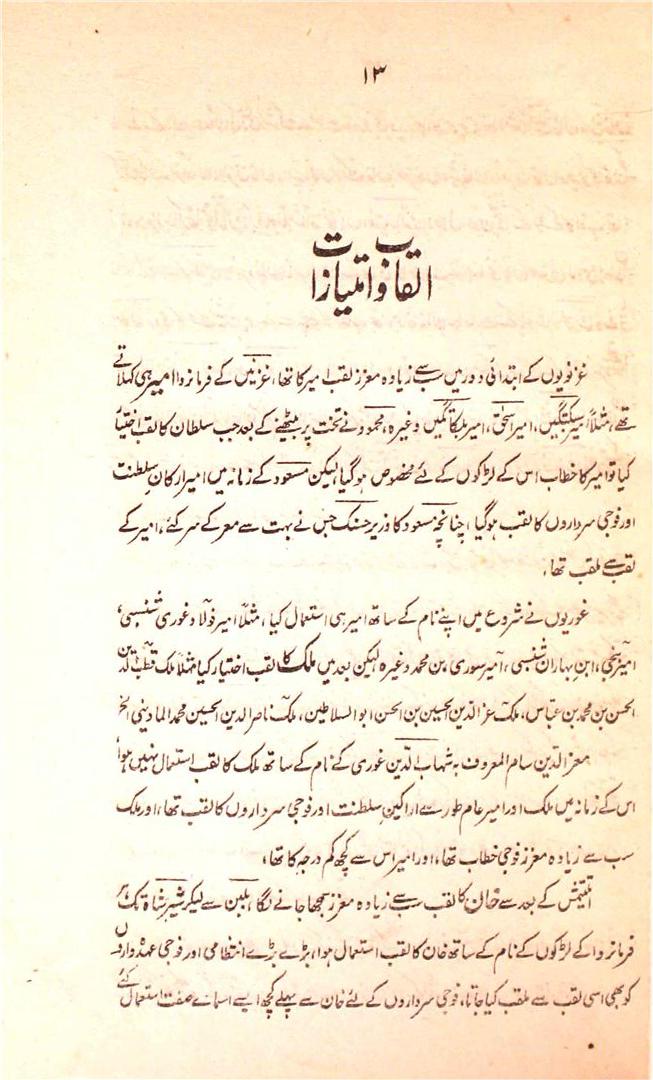 ۱۳
القاب و امتیازات
غزنویوں کے ابتدائی دور میں سب سے زیادہ معزز لقب امیر کا تھا، غزنیں کے فرمانروا امیر ہی کہلاتے
تھے، مثلاً امیر سبکتگیں، امیر اسحٰق، امیر بلکاتگیں وغیرہ، محمود نے تخت پر بیٹھنے کے بعد جب سلطان کا لقب اختیار
کیا تو امیر کا خطاب اس کے لڑکوں کے لئے مخصوص ہوگیا لیکن مسعود کے زمانہ میں امیر ارکان سلطنت
اور فوجی سرداروں کا لقب ہوگیا، چنانچہ مسعود کا وزیر جنگ جس نے بہت سے معرکے سر کئے، امیر کے
لقب سے ملقب تھا،
غوریوں نے شروع میں اپنے نام کے ساتھ امیر ہی استعمال کیا، مثلاً امیر فولاد غوری شنسبی،
امیر بنجی، ابن بہاران شنسبی، امیر سوری، بن محمد وغیرہ لیکن بعد میں ملک کا لقب اختیار کیا مثلاً ملک قطب الدین
الحسن بن محمد بن عباس، ملک عز الدین الحسین بن الحسن ابو السلاطین، ملک ناصر الدین الحسین محمد المادینی الخ
معز الدین سام المعروف بہ شہاب الدین غوری کے نام کے ساتھ ملک کا لقب استعمال نہیں ہوا
اس کے زمانہ میں ملک اور امیر عام طور سے اراکین سلطنت اور فوجی سرداروں کا لقب تھا، اور ملک
سب سے زیادہ معزز فوجی خطاب تھا، اور امیر اس سے کچھ کم درجہ کا تھا،
التتمش کے بعد سے خان کا لقب سب سے زیادہ معزز سمجھا جانے لگا، بلبن سے لیکر شیر شاہ تک ہر
فرمانروا کے لڑکوں کے نام کے ساتھ خان کا لقب استعمال ہوا، بڑے بڑے انتظامی اور فوجی عہدہ داروں
کو بھی اسی لقب سے ملقب کیا جاتا، فوجی سرداروں کے لئے خان سے پہلے کچھ ایسے اسمائے صفت استعمال کئے گئے